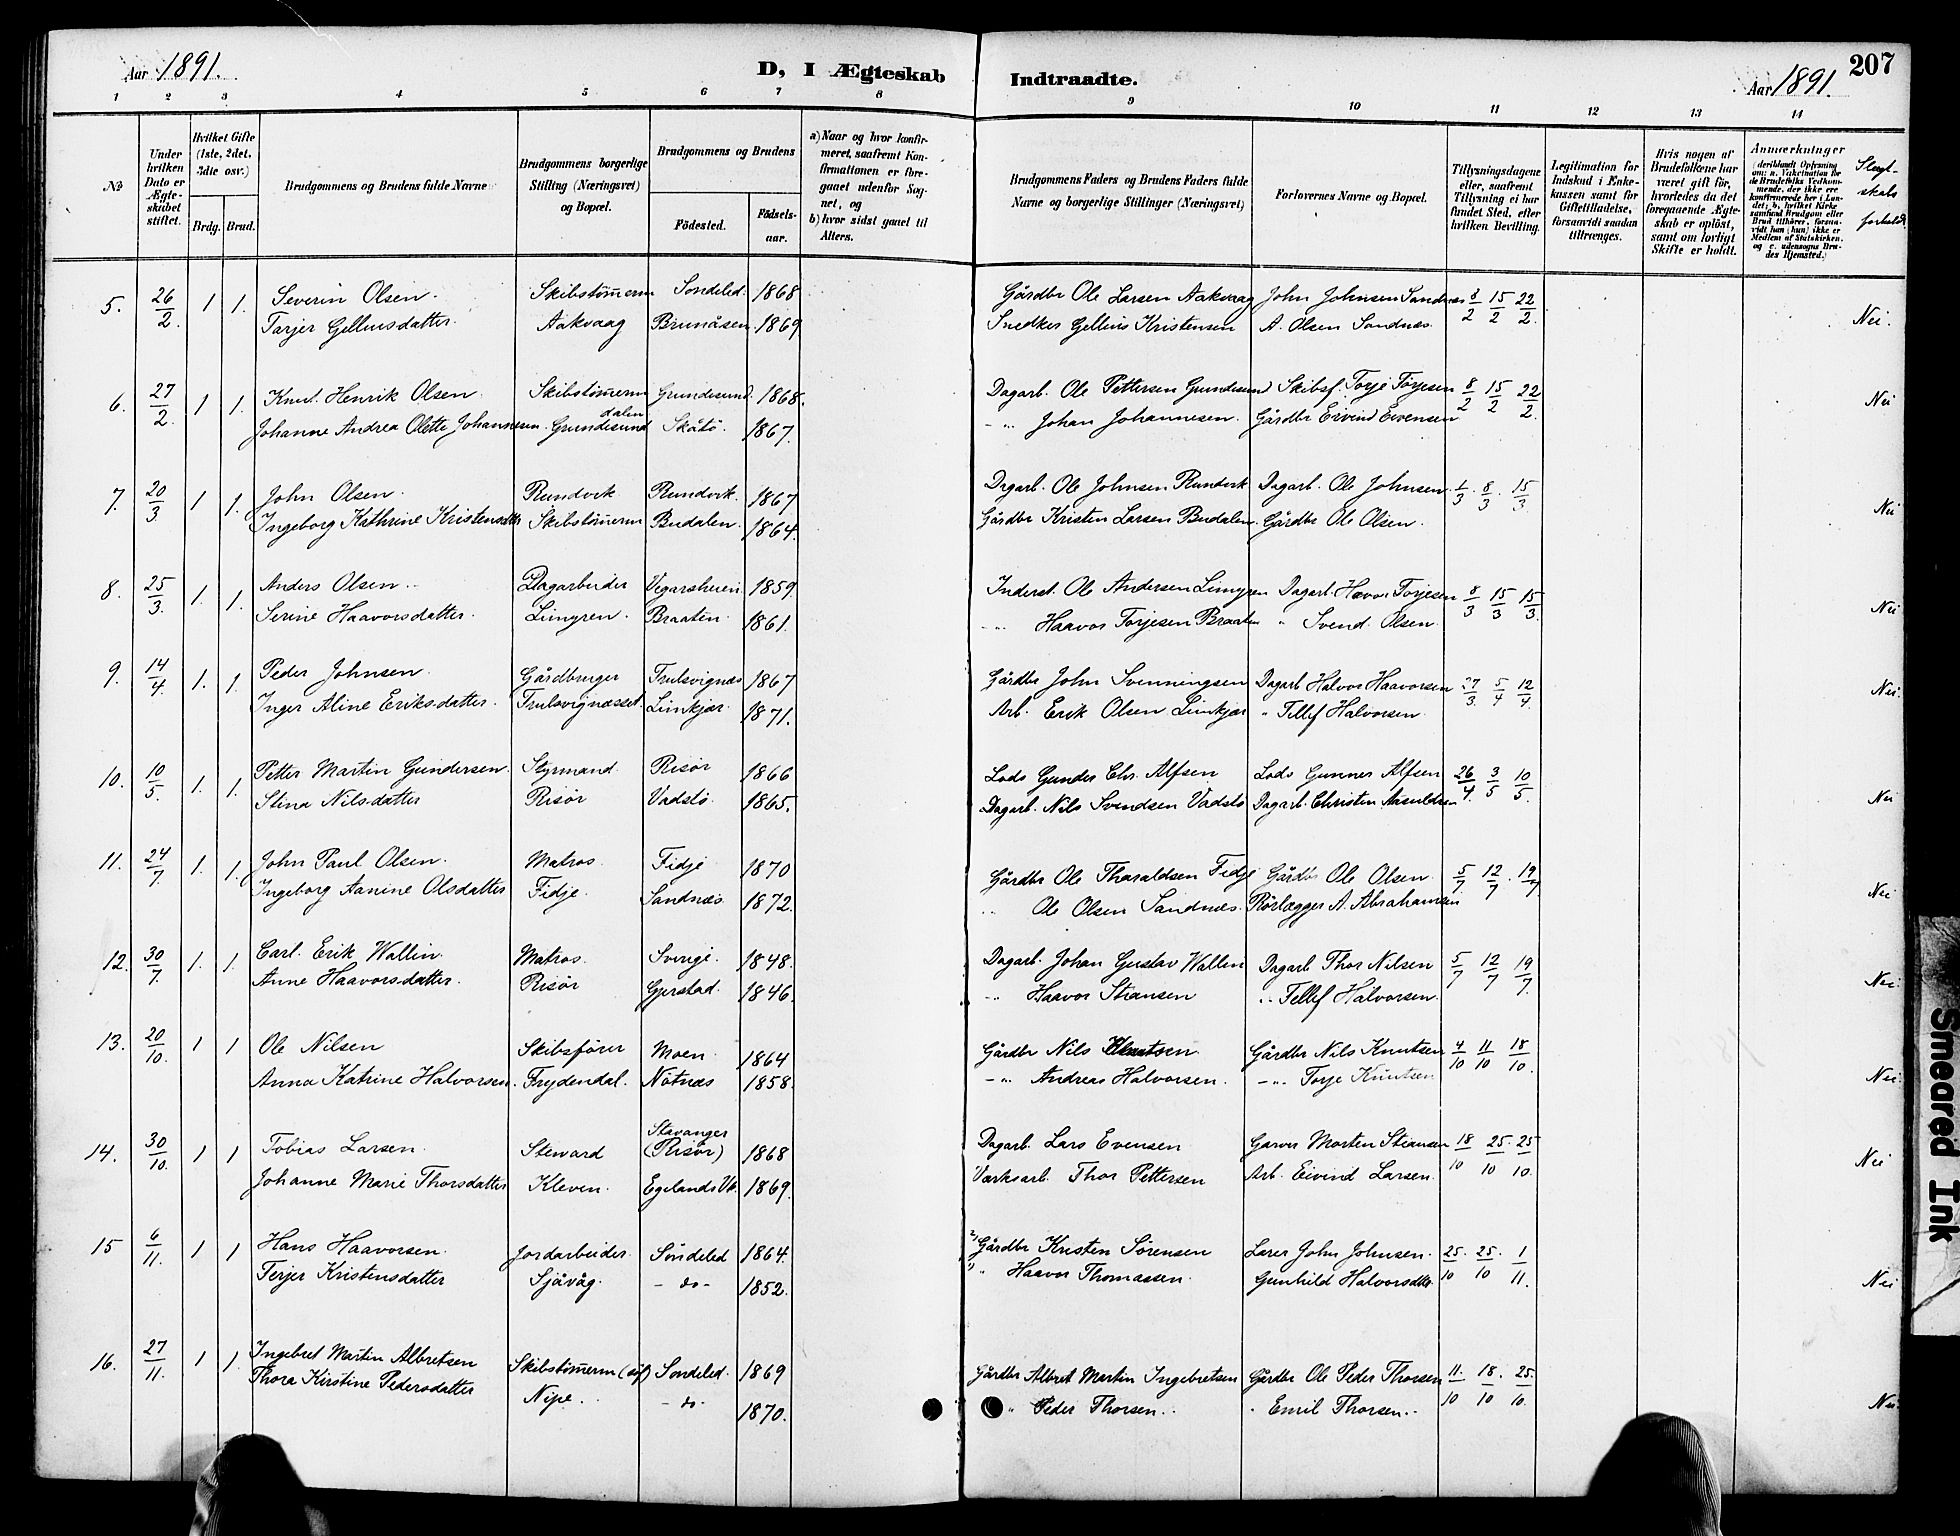 Aar 1891.
D, I Ægteskab Indtraadte.
Aar 1891.
207
1 2 3 4 5 6 7 8 9 10 11 12 13 14
No
Under hvilken Dato er Ægteskabet stiftet.
Hvilket Gifte (1ste, 2det, 3die osv.)
Brdg. Brud.
Brudgommens og Brudens fulde Navne
Brudgommens borgerlige Stilling (Næringsvei) og Bopæl.
Brudgommens og Brudens
Fødested. Fødselsaar.
a) Naar og hvor konfirmeret, saafremt Konfirmationen er foregaaet udenfor Sognet, og
b) hvor sidst gaaet til Alters.
Brudgommens Faders og Brudens Faders fulde Navne og borgerlige Stillinger (Næringsvei)
Forlovernes Navne og Bopæl.
Tillysningsdagene eller, saafremt Tillysning ei har fundet Sted, efter hvilken Bevilling.
Legitimation for Indskud i Enkekassen samt for Giftetilladelse, forsaavidt saadan tiltrænges.
Hvis nogen af Brudefolkene har været gift før, hvorledes da det foregaaende Ægteskab er opløst, samt om lovligt Skifte er holdt.
Anmærkninger (deriblandt Oplysning om: a. Vakcination for de Brudefolks Vedkommende, der ikke ere konfirmerede her i Landet; b. hvilket Kirkesamfund Brudgom eller Brud tilhører, forsaavidt han (hun) ikke er Medlem af Statskirken, og c. udensogns Brudes Hjemsted.)
Slægtskabsforhold
5. 26/2. 1 1. Severin Olsen. Skibstømerm Søndeled. 1868 Gårdbr Ole Larsen Aakvaag John Johnsen Sandnæs 8/2 15/2 22/2 Nei.
Tarjer Gelliusdatter. Aakvaag Brunåsen 1869 Snedker Gellius Kristensen A. Olsen Sandnæs.
6. 27/2. 1 1. Knut Henrik Olsen. Skibstømerm Grundesund. 1868. Dagarb. Ole Pettersen Grundesund Skibsf. Torje Torjesen 8/2 15/2 22/2 Nei
Johanne Andrea Olette Johannesen. dalen Grundesund Skåtø. 1867. -"- Johan Johannesen. Gårdbr Eivind Evensen
7. 20/3 1 1. John Olsen. Rundvik Rundvik. 1867 Dagarb. Ole Johnsen Rundvik Dagarb. Ole Johnsen. 1/3. 8/3. 15/3 Nei
Ingeborg Kathrine Kristensdtr Skibstømerm Budalen. 1864. Gårdbr Kristen Larsen Budalen. Gårdbr Ole Olsen.
8. 25/3. 1. 1. Anders Olsen. Dagarbeider Vegarsheien 1859. Inderst. Ole Andersen Limyren Dagarb. Havor Torjesen 8/3 15/3 15/3. Nei
Serine Haavorsdatter. Limyren. Braaten. 1861. -"- Haavor Torjesen Braaten " Svend Olsen.
9. 14/4. 1. 1. Peder Johnsen. Gårdbruger Trulsvignæs 1867 Gårdbr John Svenningsen Dagarb Halvor Haavorsen 27/3. 5/4 12/4 Nei.
Inger Aline Eriksdatter. Trulsvignæsset. Limkjær. 1871. Arb. Erik Olsen Limkjær " Tellef Halvorsen.
10. 10/5. 1. 1. Petter Martin Gundersen. Styrmand. Risør 1866 Lods Gunder Chr. Alfsen Lods Gunner Alfsen 26/4 3/5 10/5. Nei
Stina Nilsdatter Risør Vadstø. 1865. Dagarb. Nils Svendsen Vadstø Dagarb. Christen Aasuldsen
11. 24/7. 1. 1. John Paul Olsen. Matros. Fidje 1870 Gårdbr Ole Tharaldsen Fidje Gårdbr Ole Olsen. 5/7 12/7. 19/7 Nei
Ingeborg Aanine Olsdatter Fidje. Sandnæs. 1872. " Ole Olsen Sandnæs. Rørlægger A. Abrahamsen
12. 30/7. 1. 1. Carl Erik Wallin. Matros. Sverige. 1848. Dagarb. Johan Gustav Wallin Dagarb Thor Nilsen 5/7 12/7 19/7. Nei
Anne Haavorsdatter. Risør Gjerstad. 1846. -"- Haavor Stiansen " Tellef Halvorsen.
13. 20/10. 1 1 Ole Nilsen Skibsfører Moen. 1864 Gårdbr Nils Knutsen. Gårdbr Nils Knutsen 4/10 11/10 18/10. Nei
Anna Katrine Halvorsen. Frydendal. Nøtnæs 1858. -"- Andreas Halvorsen. -"- Torje Knutsen
14. 30/10. 1 1 Tobias Larsen. Steward Stavanger (Risør) 1868 Dagarb. Lars Evensen Garver Morten Stiansen 18/10 25/10. 25/10. Nei
Johanne Marie Thorsdatter Kleven. Egelands Vk. 1869. Værksarb. Thor Pettersen Arb. Eivind Larsen.
15 6/11. 1 1 Hans Haavorsen. Jordarbeider. Søndeled 1864. Gårdbr Kristen Sørensen Lærer John Johnsen. 25/10. 25/10. 1/11. Nei
Terjer Kristensdatter Sjåvåg. - do - 1852. " Haavor Thomassen. Gunhild Halvorsdtr
16. 27/11. 1 1. Ingebret Martin Albretsen Skibstømerm Søndeled. 1869 Gårdbr Albret Martin Ingebretsen Gårdbr Ole Peder Thorsen 11/10. 18/10. 25/10. Nei.
Thora Kirstine Pedersdatter Nipe. - do - 1870. " Peder Thorsen. " Emil Thorsen.
Smeared Ink